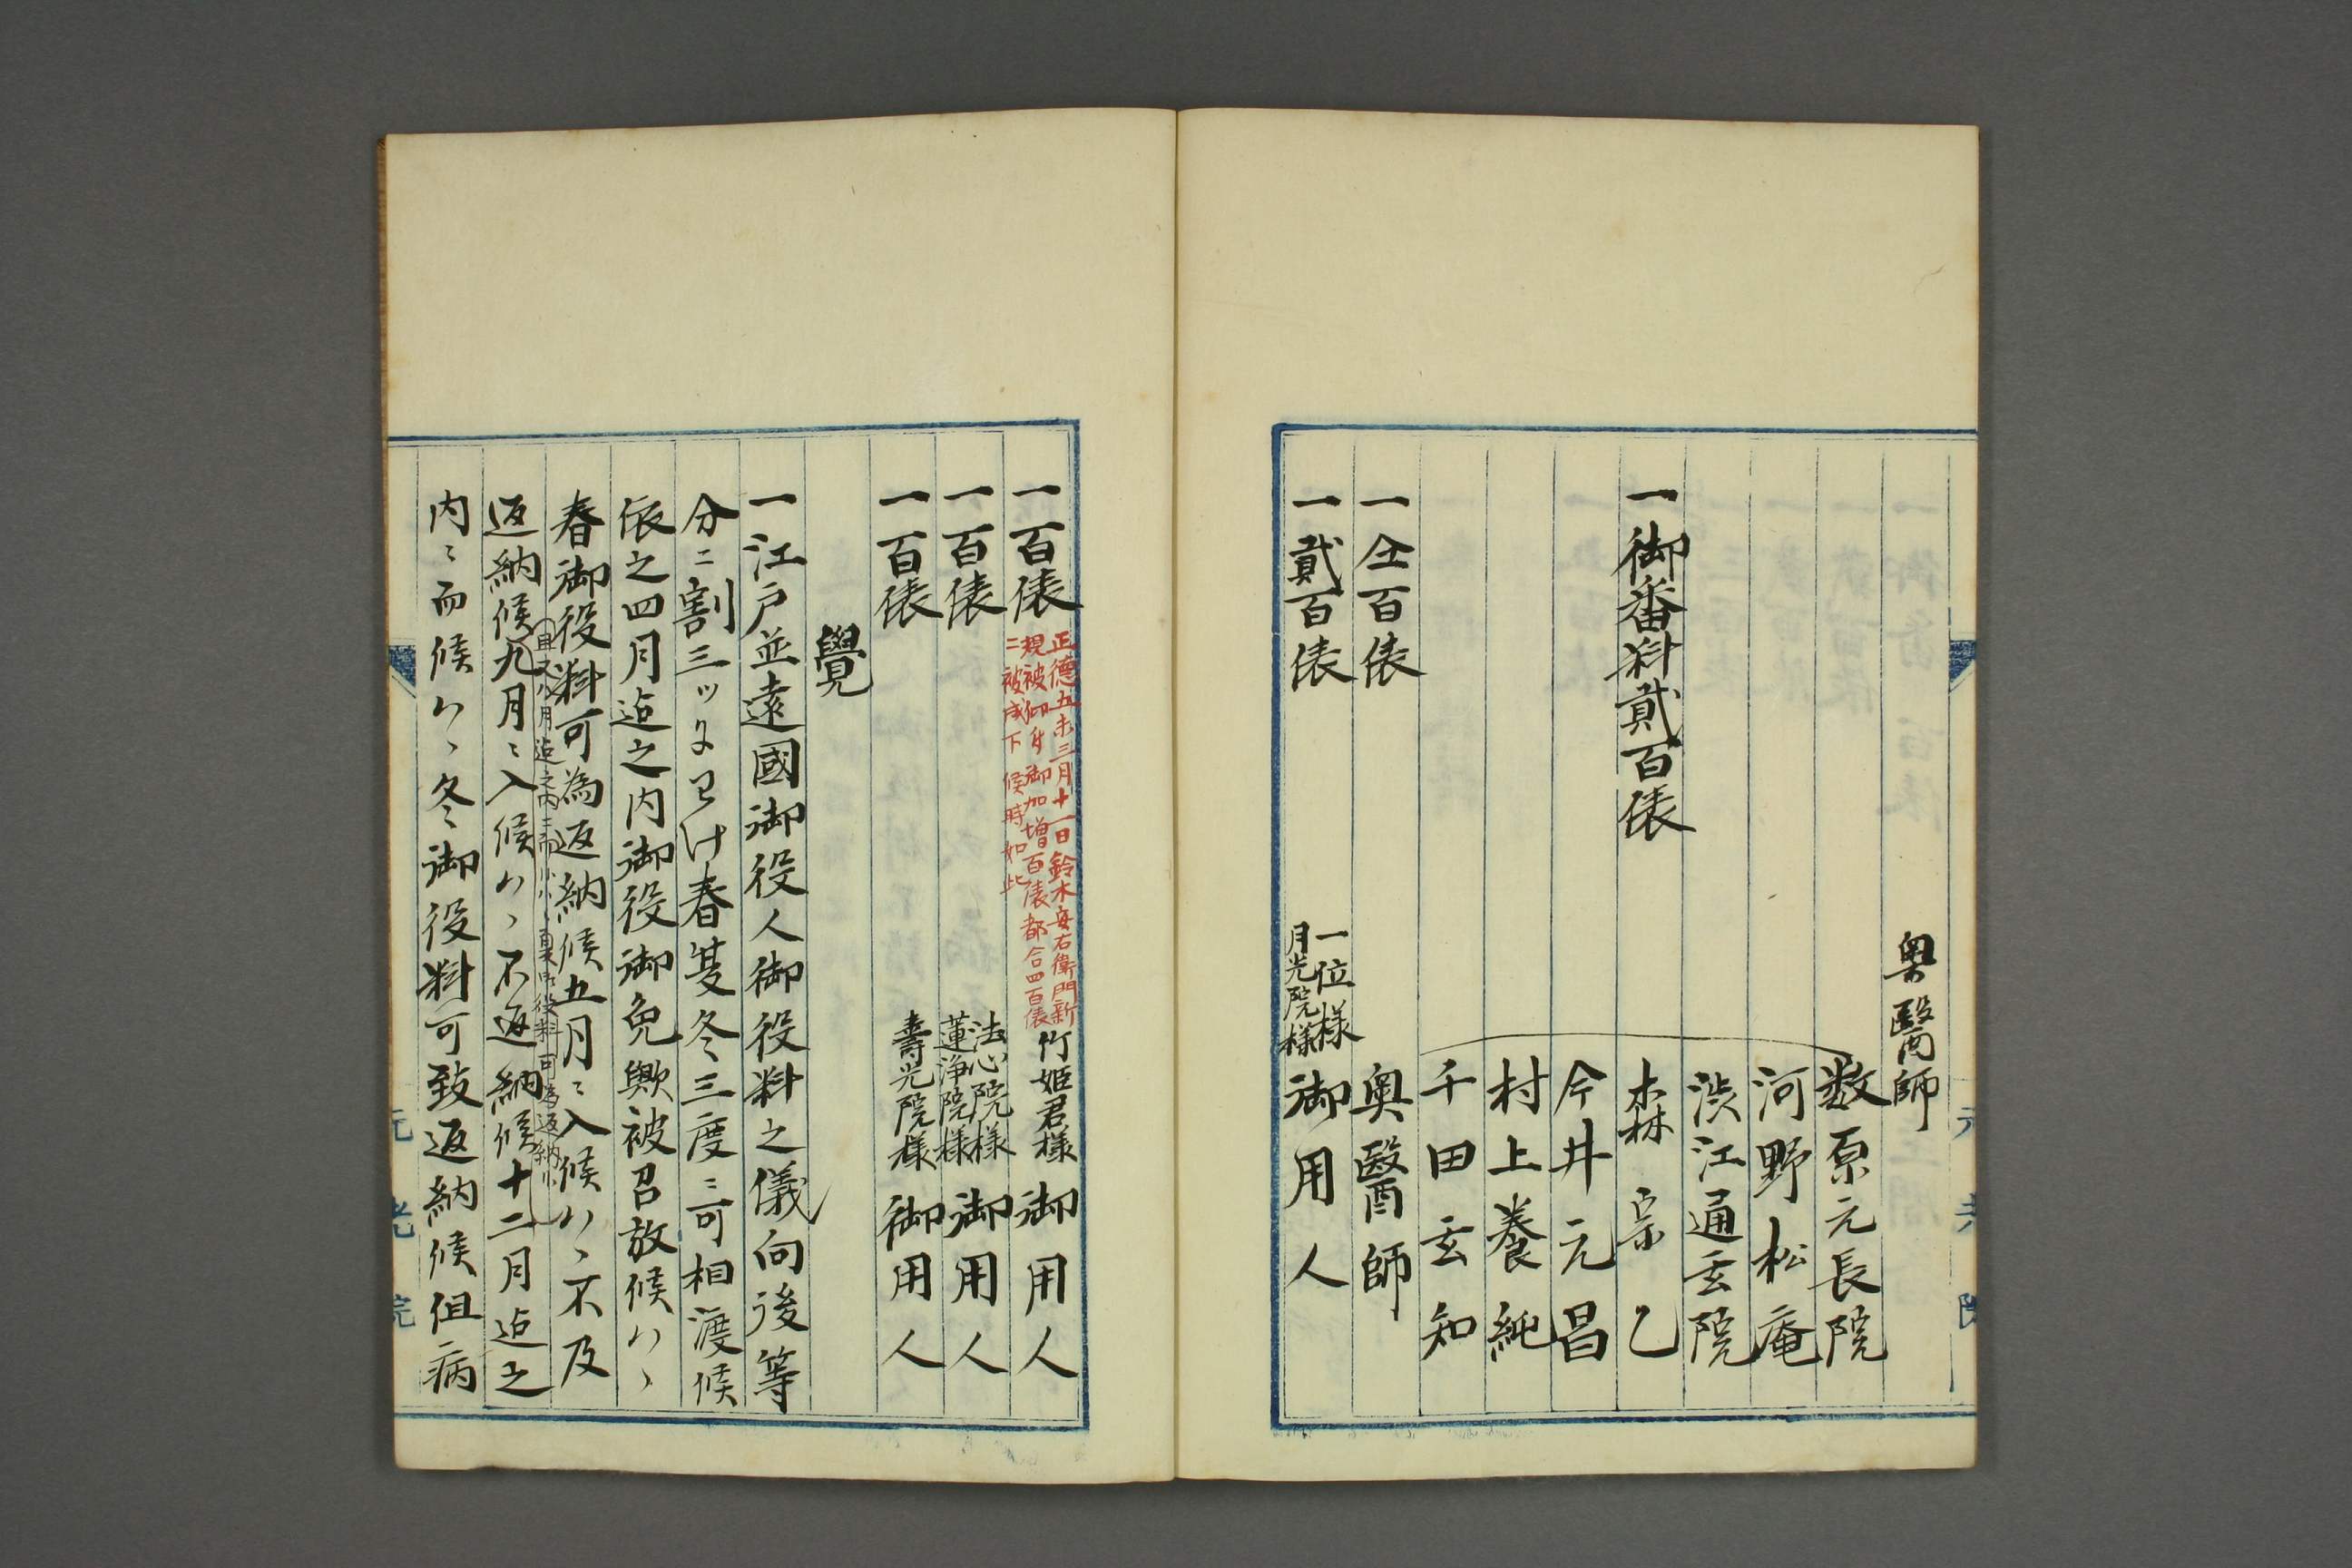 奥醫師
数原元長院
河野松庵
渋江通玄院
一御番料貳百俵
森宗乙
今井元昌
村上養純
千田玄知
一仝百俵 奥醫師
一貳百俵 一位様 月光院様 御用人
一百俵 竹姫君様 御用人
正徳五未三月十一日鈴木安右衛門新
規被仰付御加増百俵都合四百俵
ニ被成下候時如此
一百俵 法心院様 蓮浄院様 御用人
一百俵 壽光院様 御用人
覺
一江戸並遠國御役人御役料之儀向後等
分ニ割三ツニわけ春夏冬三度ニ可相渡候
依之四月迠之内御役御免歟被召放候ハヽ
春御役料可為返納候五月ニ入候ハヽ不及
返納候九月ニ入候ハヽ不返納候十二月迠之
内ニ而候ハヽ冬御役料可致返納候但病
元老院
元老院